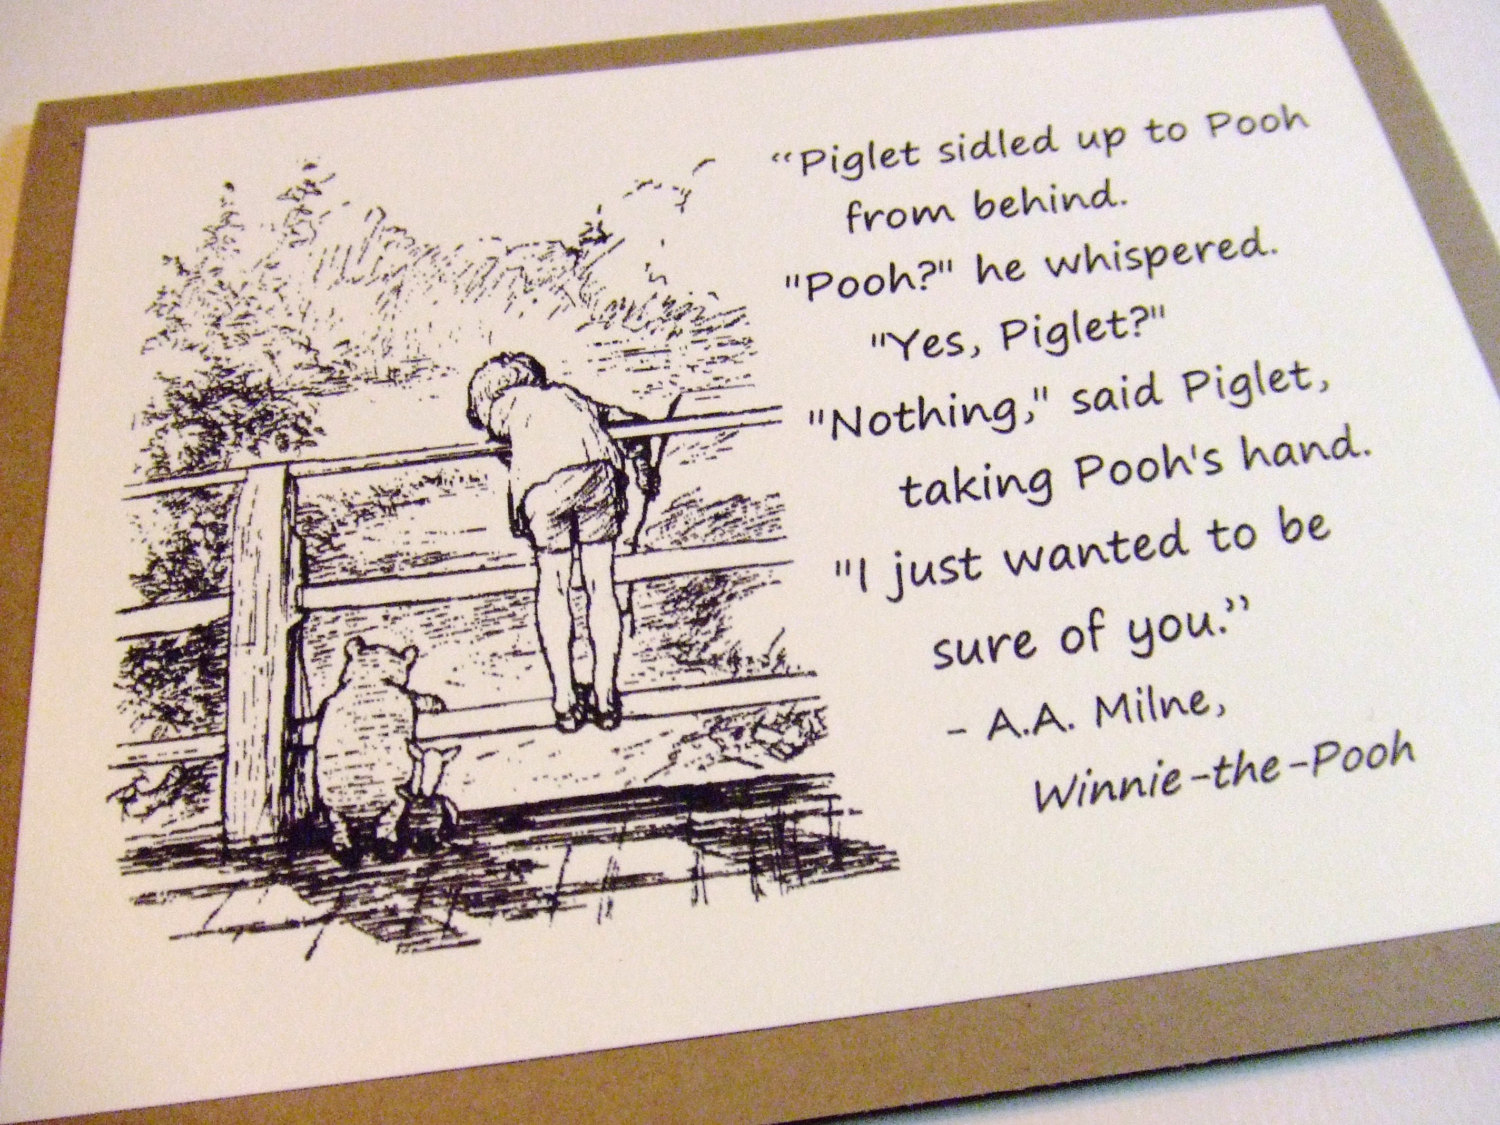 “Piglet sidled up to Pooh
from behind.
"Pooh?" he whispered.
"Yes, Piglet?"
"Nothing," said Piglet,
taking Pooh's hand.
"I just wanted to be
sure of you.”
- A.A. Milne,
Winnie-the-Pooh